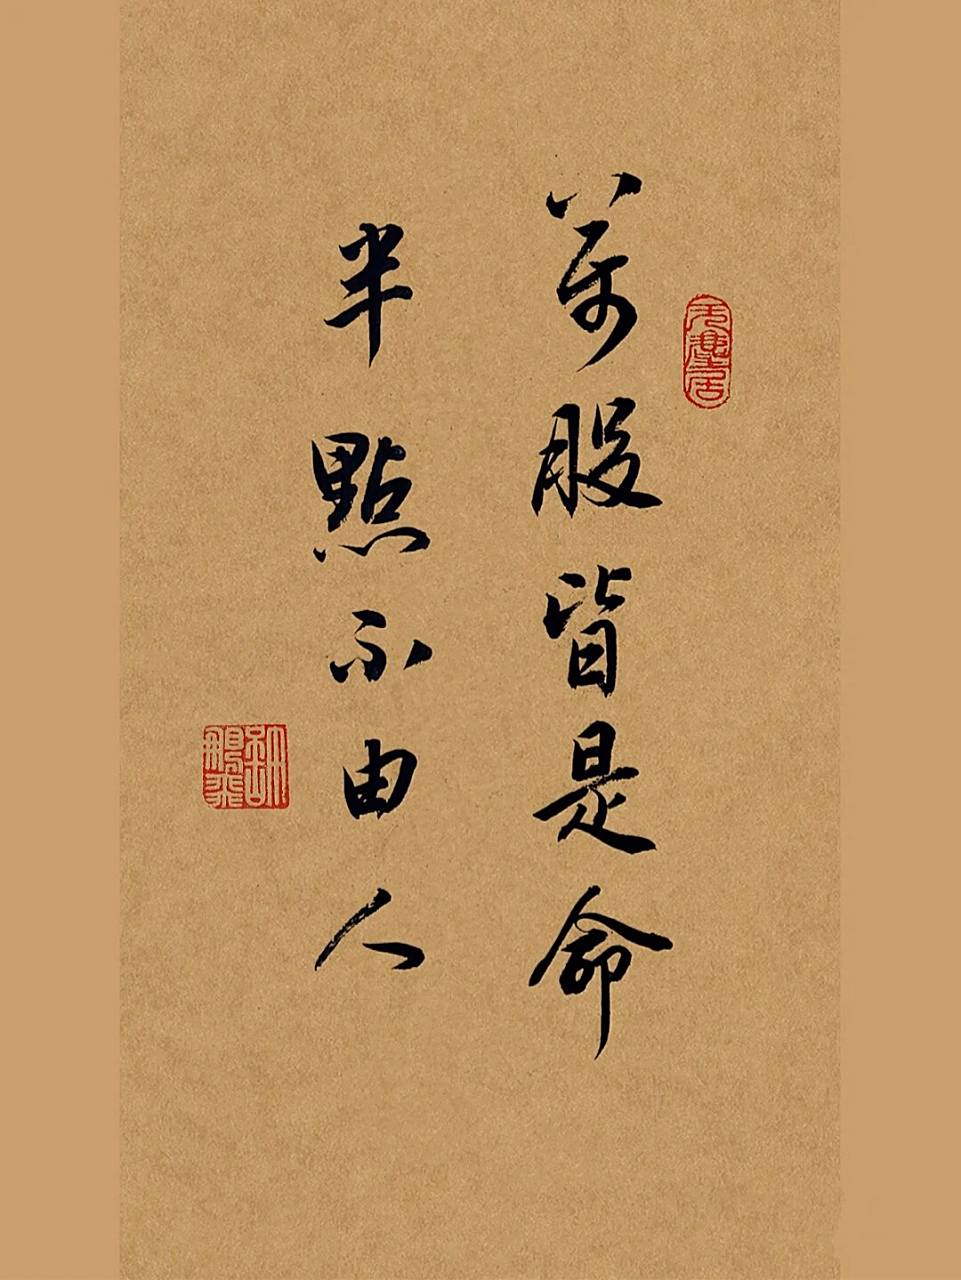 萬股皆是命
半點不由人